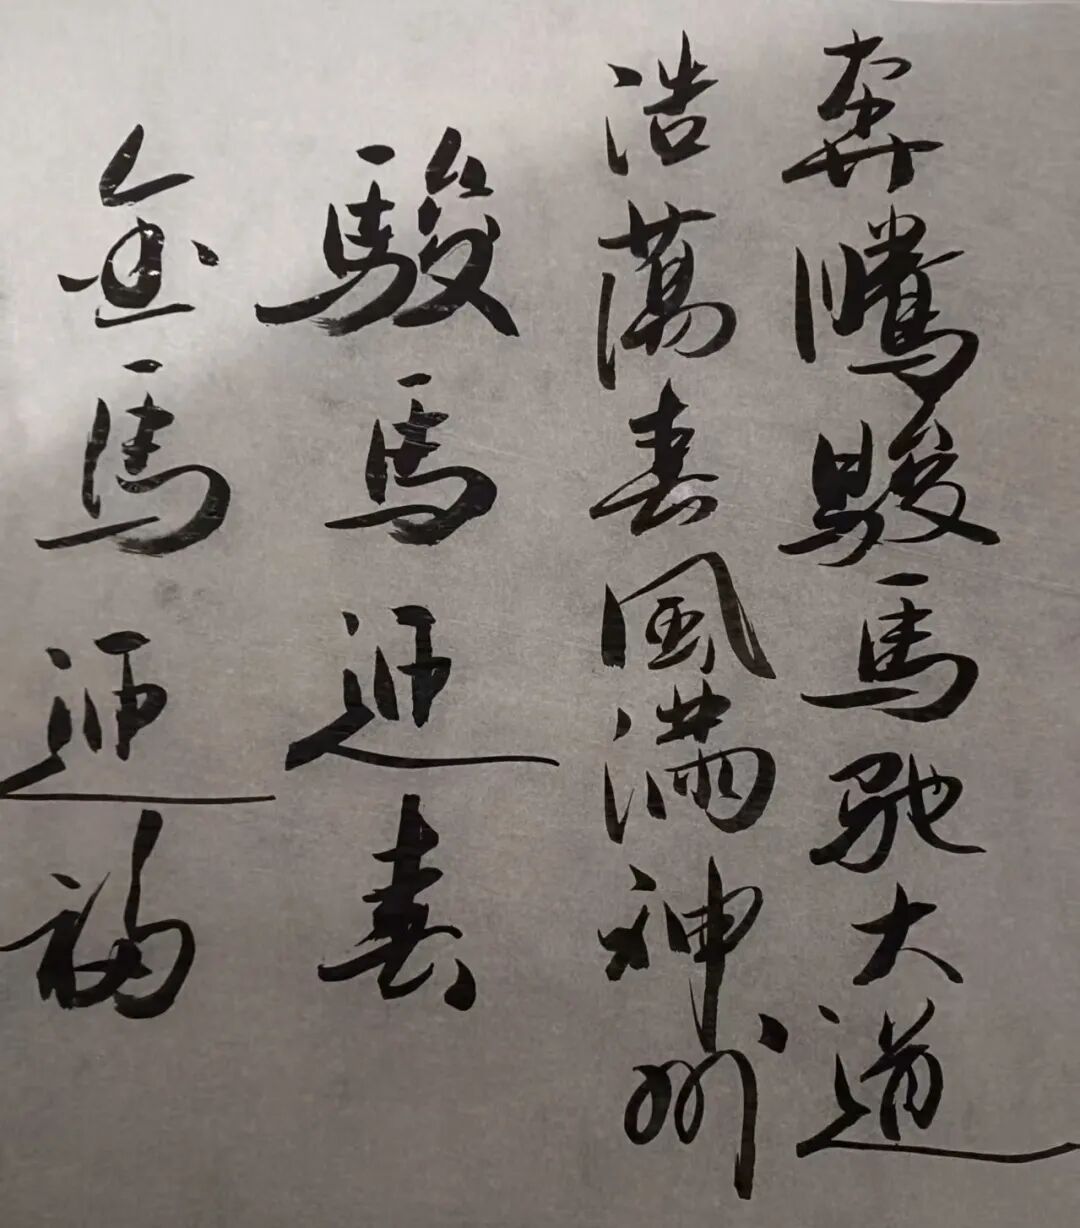 奔騰駿馬馳大道
浩蕩春風滿神州
駿馬迎春
金馬迎福